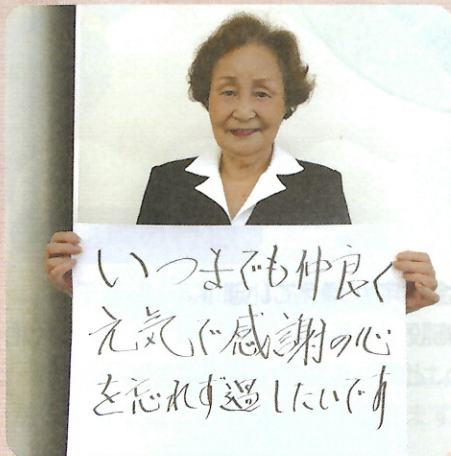 いつまでも仲良く
元気で感謝の心
を忘れず過したいです